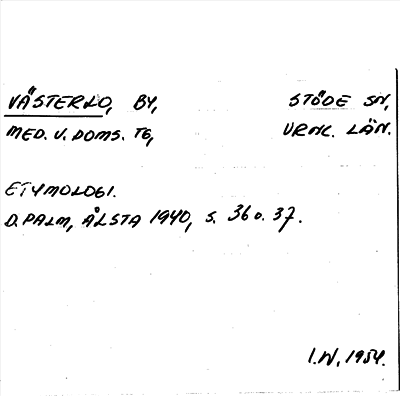 VÄSTERLO, BY, STÖDE SN,
MED. V. DOMS. TG, VRNL. LÄN.
ETYMOLOGI.
D. PALM, ÅLSTA 1940, S. 36 o. 37.
I.W, 1954.